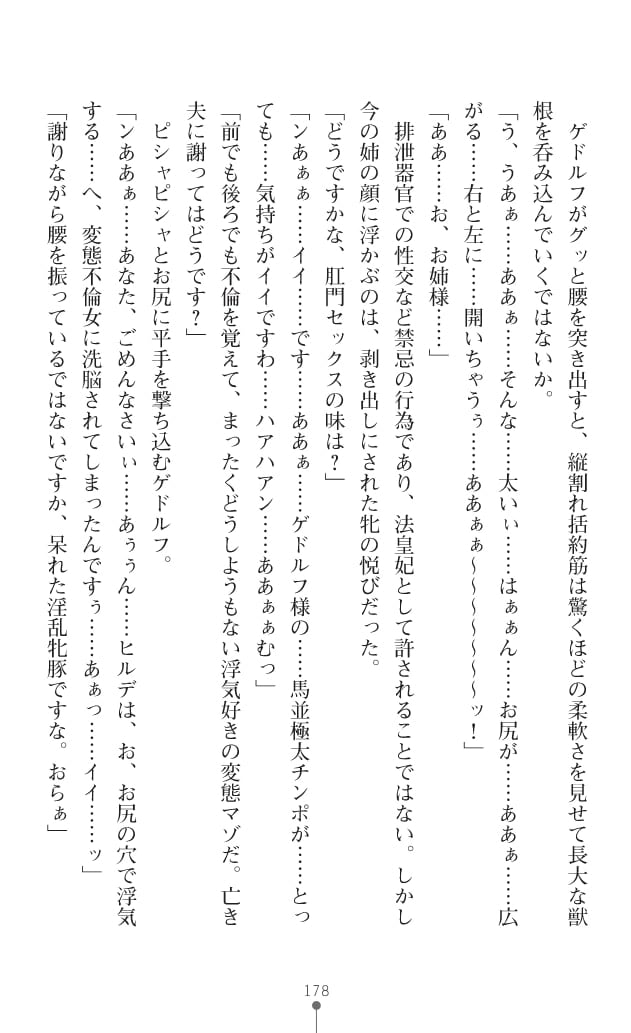 ゲドルフがグッと腰を突き出すと、縦割れ括約筋は驚くほどの柔軟さを見せて長大な獣
根を呑み込んでいくではないか。
「う、うあぁ……ああぁ……そんな……太いぃ……はぁぁん……お尻が……ああぁ……広
がる……右と左に……開いちゃうぅ……ああぁぁ～～～～～～～ッ！」
「ああ……お、お姉様……」
排泄器官での性交など禁忌の行為であり、法皇妃として許されることではない。しかし
今の姉の顔に浮かぶのは、剥き出しにされた牝の悦びだった。
「どうですかな、肛門セックスの味は？」
「ンあぁぁ……イイ……です……ああぁ……ゲドルフ様の……馬並極太チンポが……とっ
ても……気持ちがイイですわ……ハアハアン……ああぁぁむっ」
「前でも後ろでも不倫を覚えて、まったくどうしようもない浮気好きの変態マゾだ。亡き
夫に謝ってはどうです？」
ピシャピシャとお尻に平手を撃ち込むゲドルフ。
「ンああぁ……あなた、ごめんなさいぃ……あぅぅん……ヒルデは、お、お尻の穴で浮気
する……へ、変態不倫女に洗脳されてしまったんですぅ……あぁっ……イイ……ッ」
「謝りながら腰を振っているではないですか、呆れた淫乱牝豚ですな。おらぁ」
178